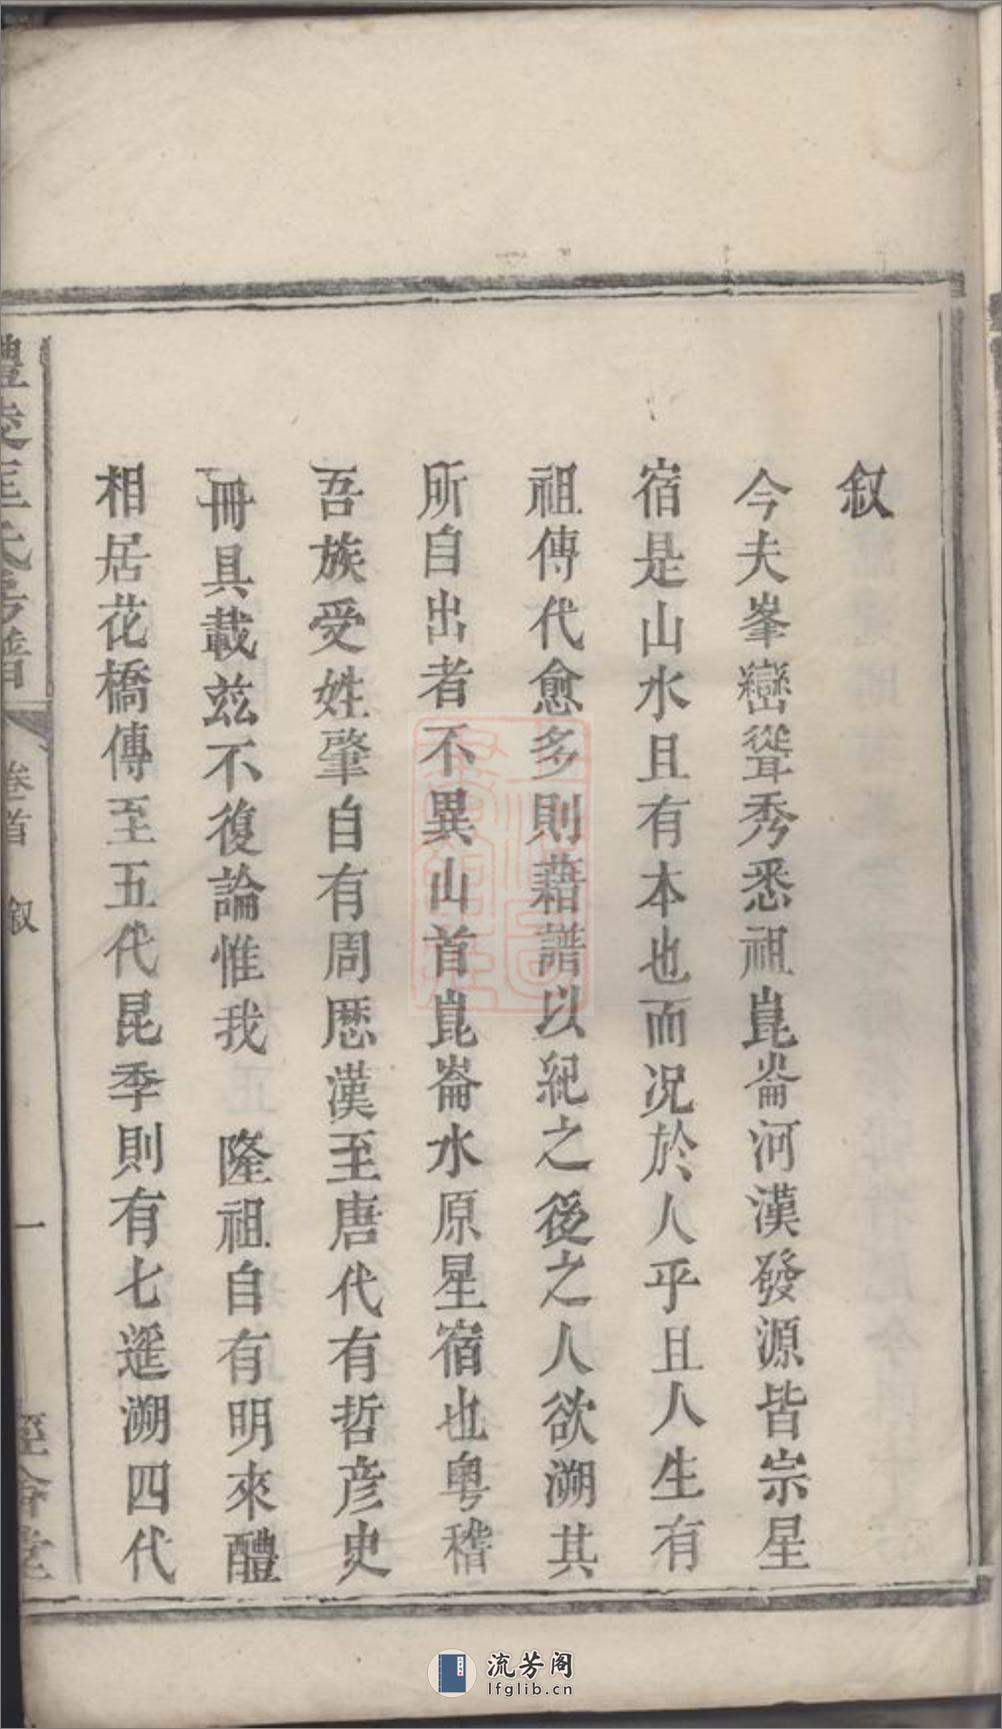 叙
今夫峯巒聳秀悉祖崑崙河漢發源皆宗星
宿是山水且有本也而况於人乎且人生有
祖傳代愈多則藉譜以紀之後之人欲溯其
所自出者不異山首崑崙水原星宿也粤稽
吾族受姓肇自有周厯漢至唐代有哲彦史
冊具載兹不復論惟我 隆祖自有明來醴
相居花橋傳至五代昆季則有七遥溯四代
卷首 叙 一
流芳阁
lfglib.cn